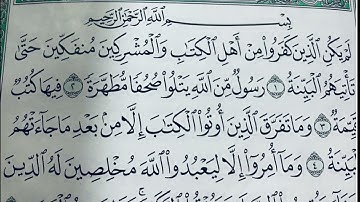 بِسْمِ اللَّهِ الرَّحْمَٰنِ الرَّحِيمِ
لَمْ يَكُنِ الَّذِينَ كَفَرُوا مِنْ أَهْلِ الْكِتَابِ وَالْمُشْرِكِينَ مُنفَكِّينَ حَتَّىٰ
تَأْتِيَهُمُ الْبَيِّنَةُ ١ رَسُولٌ مِّنَ اللَّهِ يَتْلُوا صُحُفًا مُّطَهَّرَةً ٢ فِيهَا كُتُبٌ
قَيِّمَةٌ ٣ وَمَا تَفَرَّقَ الَّذِينَ أُوتُوا الْكِتَابَ إِلَّا مِنۢ بَعْدِ مَا جَاءَتْهُمُ
الْبَيِّنَةُ ٤ وَمَا أُمِرُوا إِلَّا لِيَعْبُدُوا اللَّهَ مُخْلِصِينَ لَهُ الدِّينَ